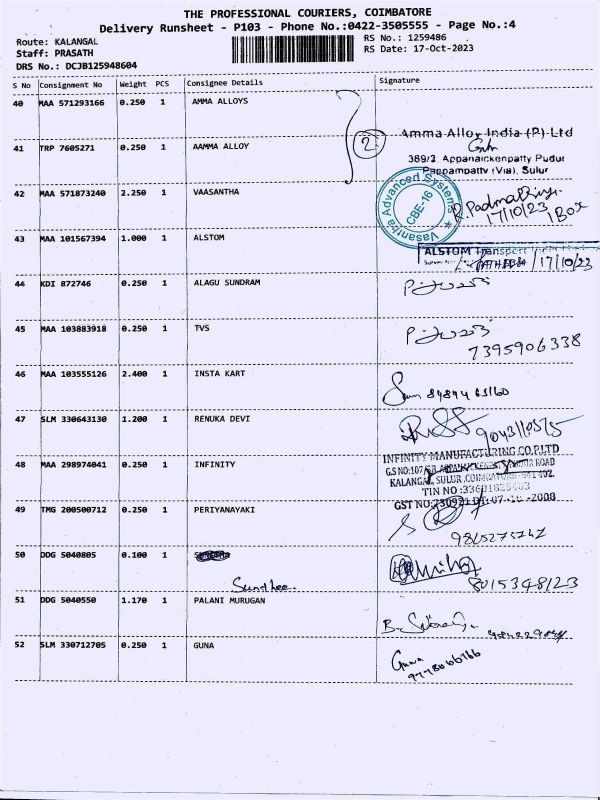 THE PROFESSIONAL COURIERS, COIMBATORE
Delivery Runsheet - P103 - Phone No.:0422-3505555 - Page No.:4
Route: KALANGAL
Staff: PRASATH
DRS No.: DCJB125948604
RS No.: 1259486
RS Date: 17-Oct-2023
S No Consignment No Weight PCS Consignee Details Signature
40 MAA 571293166 0.250 1 AMMA ALLOYS
2
Amma Alloy India (P) Ltd
41 TRP 7605271 0.250 1 AAMMA ALLOY
369/2 Appanaickenpatty Pudur
Pappampatty (Via), Sulur
42 MAA 571873240 2.250 1 VAASANTHA
Vasantha Advanced Systems
CBE-16
17/10/23
1 Box
43 MAA 101567394 1.000 1 ALSTOM
ALSTOM Transport India
17/10/23
44 KDI 872746 0.250 1 ALAGU SUNDRAM
45 MAA 103883918 0.250 1 TVS
7395906338
46 MAA 103555126 2.400 1 INSTA KART
47 SLM 330643130 1.200 1 RENUKA DEVI
48 MAA 298974041 0.250 1 INFINITY
INFINITY MANUFACTURING CO.P.LTD
KALANGAL, SULUR, COIMBATORE-641 402.
TIN NO :33631825403
49 TMG 200500712 0.250 1 PERIYANAYAKI
50 DDG 5040805 0.100 1
Sundhee
8015348123
51 DDG 5040550 1.170 1 PALANI MURUGAN
52 SLM 330712705 0.250 1 GUNA
Guna
9778066766